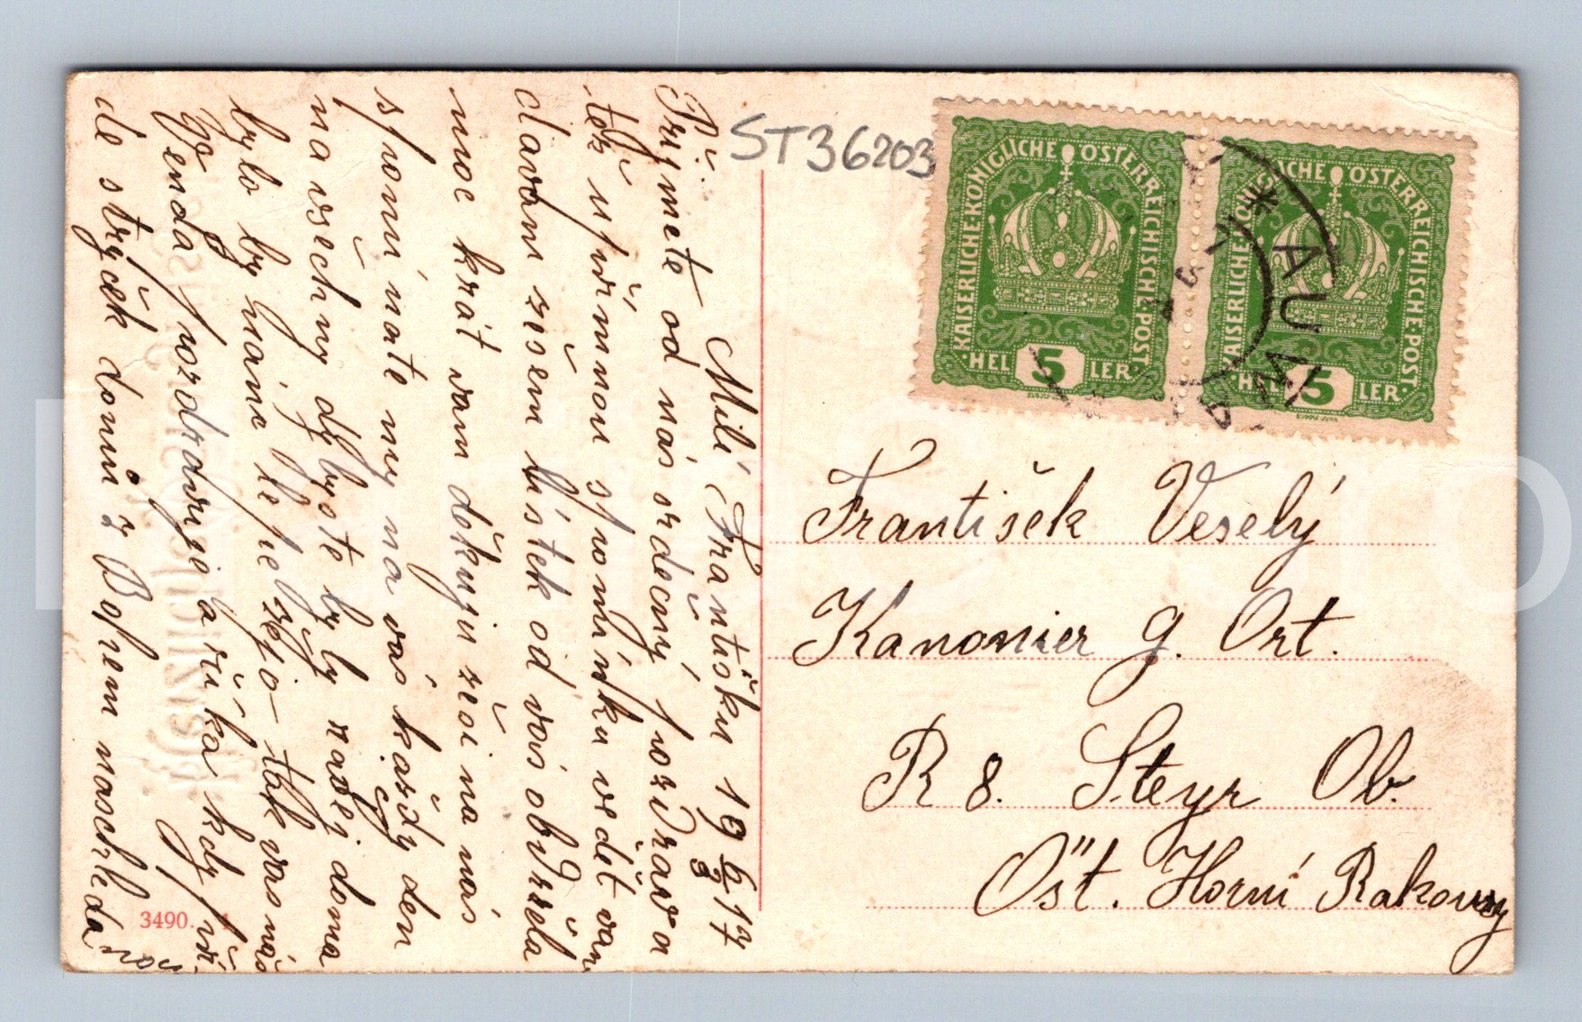 ST36203
KAISERLICHE·KÖNIGLICHE ÖSTERREICHISCHE·POST
5
HELLER
KAISERLICHE·KÖNIGLICHE ÖSTERREICHISCHE·POST
5
HELLER
AU
Milí Františku 19 6/3 17
Přijměte od nás srdečný pozdrav a
též upřímnou spomínku vedět vam
davam zesem lístek od vás obdržela
moc krát vam děkuju zeci na nás
spomínate my na vás každy den
na všechny dybyste byly raděj doma
bylo by máme lepie
Jenda pozdravuje a říka kdy při
de stryček domu z Bohem naschleda
nou
František Veselý
Kanonier g. Ort.
R 8. Steyr Ob.
Öst. Horní Rakousy
3490.